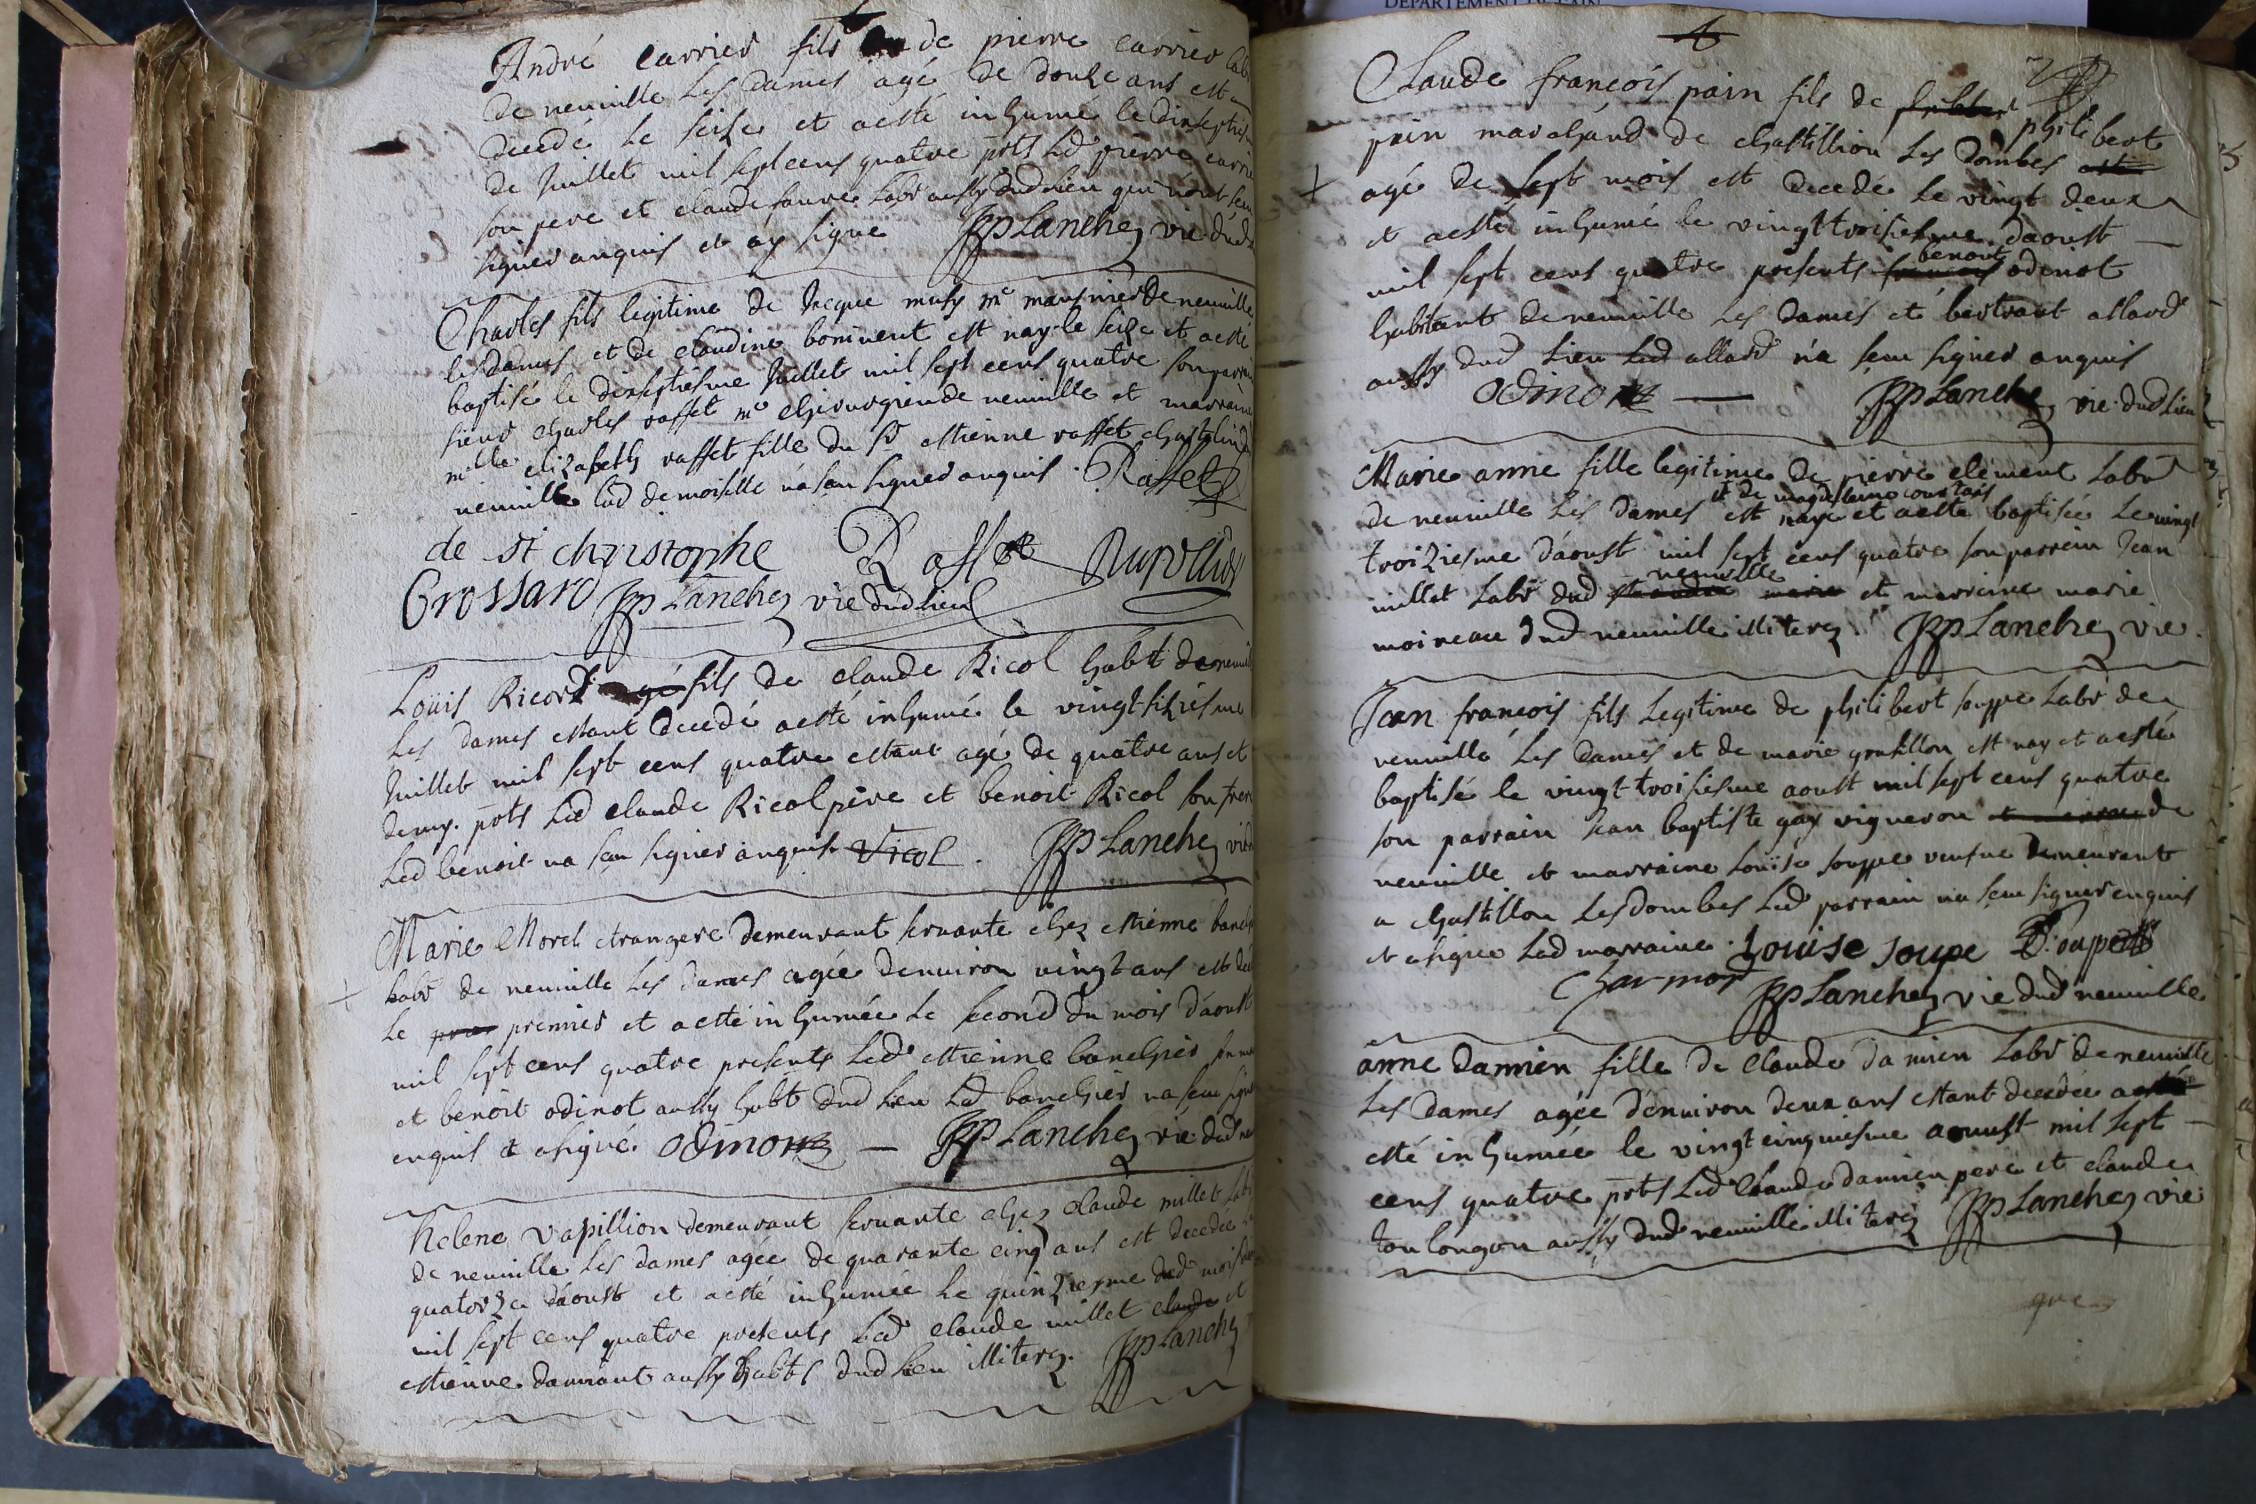 André Carrier fils de pierre carrier lab
de neuville Les dames agé de douze ans est
decedé le seize et aesté inhumé le dixseptiesm
de Juillet mil sept cens quatre pñts Led pierre carrie
son pere et claude fauvre Labr aussy dud lieu qui n'ont sceu
signer enquis et ay signé JPLanchez vic dud
Charles fils legitime de Jacque mussy me maunier de neuville
les dames et de claudine bonivent est nay le seize et aesté
baptisé le dixseptiesme Juillet mil sept cens quatre son parrain
sieur charles raffet me chirurgien de neuville et marraine
mlle elizabeth raffet fille du sr estienne raffet chastelin de
neuville lad demoiselle n'a sceu signer enquis . Raffet
de st christophe Raffet
Crossard JPLanchez vic dud lieu
Loüis Ricol fils de claude Ricol habit de neuvil
Les dames estant decedé aesté inhumé le vingtsixiesme
Juillet mil sept cens quatre estant agé de quatre ans et
demy. pñts Led claude Ricol père et benoit Ricol son frere
Led benoit na sceu signer enquis Ricol . JPLanchez vic d
Marie Morel etrangere demeurant servante chez estienne banch
Labr de neuville Les dames agée d'environ vingt ans est dec
Le premier et aesté inhumée Le second du mois d'aoust
mil sept cens quatre presents Led estienne banchier son m
et benoit odinot aussy habt dud lieu Led banchier na sceu signer
enquis et a signé. odinot — JPLanchez vic dud ne
helene vapillion demeurant servante chez claude millet Labr
de neuville Les dames agée de quarante cinq ans est decedée
quatorze d'aoust et aesté inhumée Le quinziesme dud mois
mil sept cens quatre presents Led claude millet claude et
estienne damiant aussy habts dud lieu illiterez. JPLanchez
4
Claude françois pain fils de philibert
pain marchand de chastillion Les dombes
agé de sept mois est decedé le vingt deux
et aesté inhumé le vingttroisiesme d'aoust
mil sept cens quatre presents benoit odinot
habitant de neuville Les dames et bertrant allard
aussy dud lieu Led allard n'a sceu signer enquis
odinot — JPLanchez vic dud lieu
Marie anne fille legitime de pierre clement Labr
et de magdelaine
de neuville Les dames est naye et aesté baptisée Le vingt
troiziesme d'aoust mil sept cens quatre son parrein Jean
neuville
millet Labr dud et marreine marie
moineau dud neuville illiterez. JPLanchez vic.
Jean françois fils Legitime de philibert souppe Labr de
neuville Les dames et de marie grosillon est nay et aesté
baptisé le vingt troisiesme aoust mil sept cens quatre
son parrain Jean baptiste gay vigneron de
neuville et marraine Louïse souppe veusve demeurant
a chastillon Les dombes Led parrain n'a sceu signer enquis
et a signé Lad marraine . Louise soupe
Charmon JPLanchez vic dud neuville
anne damien fille de claude damien Labr de neuville
Les dames agée d'environ deux ans estant decedée a
esté inhumée le vingt cinquiesme aoust mil sept
cens quatre pñts Led Claude damien pere et claude
toulongon aussy dud neuville illiterez JPLanchez vic